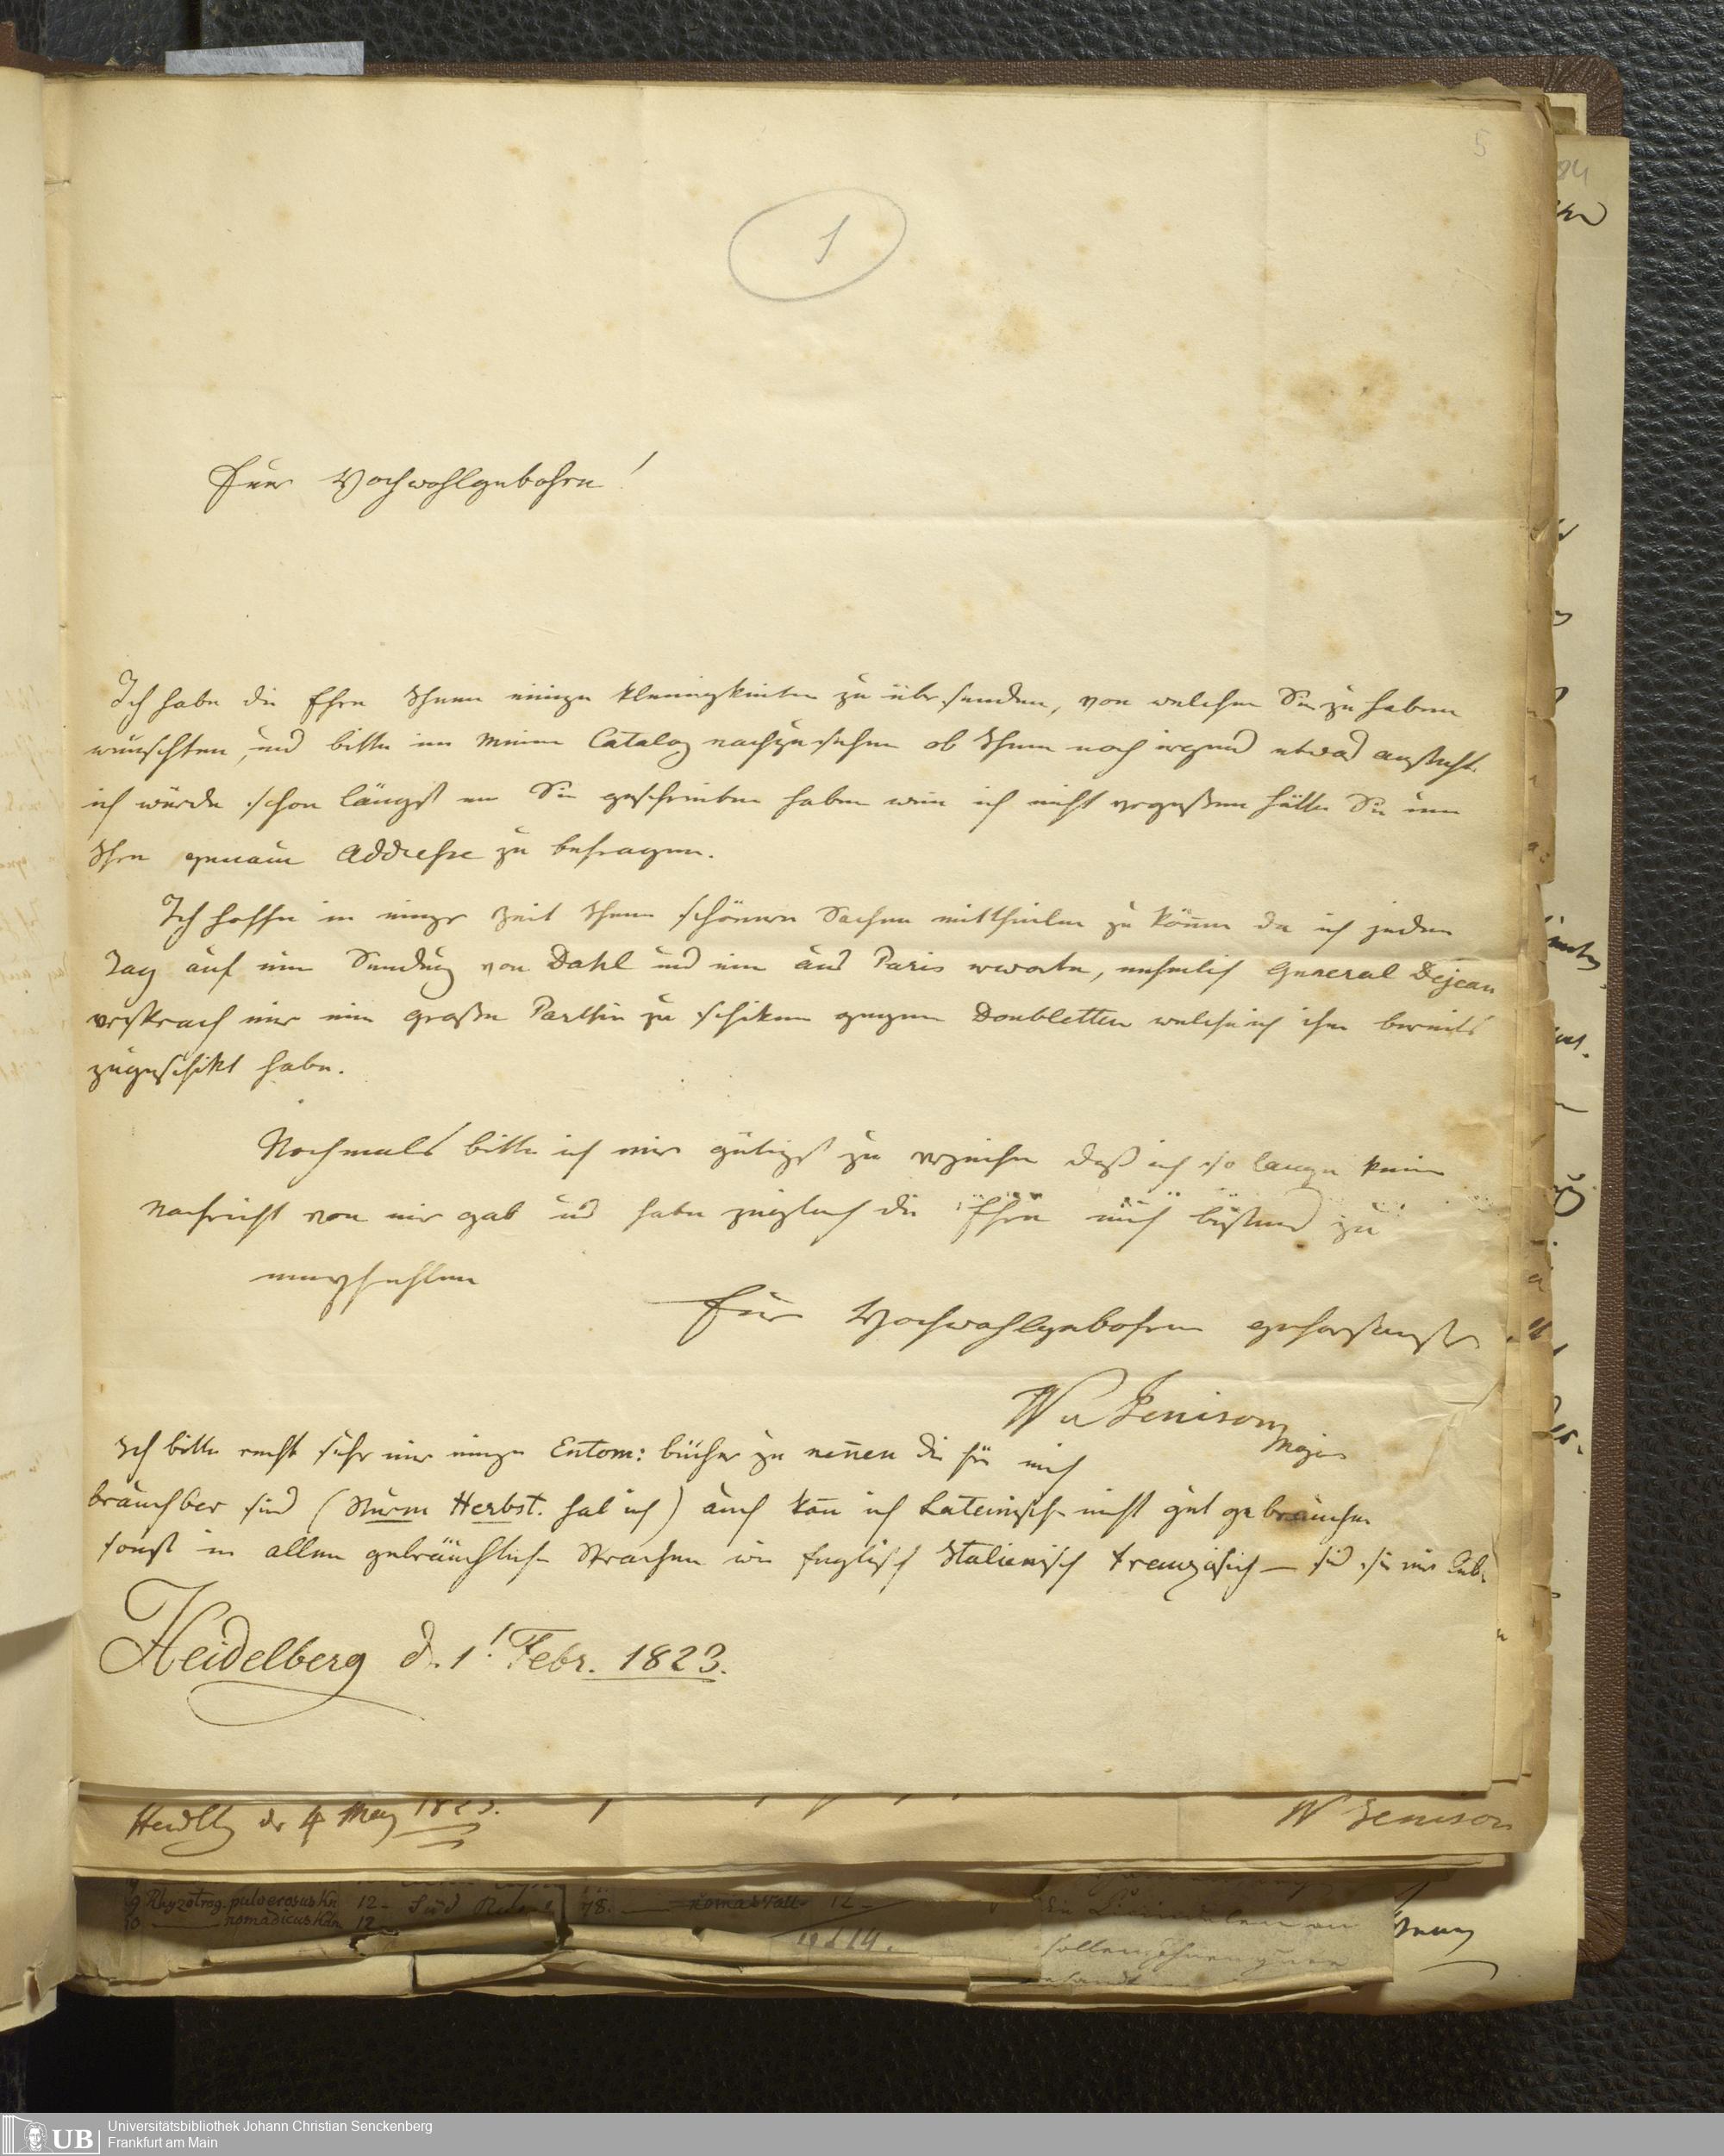 5
1
Euer Hochwohlgebohrn!
Ich habe die Ehre Ihnen einige Kleinigkeiten zu übersenden, von welchen Sie zu haben
wünschten, und bitte in meinem Catalog nachzusehen ob Ihnen noch irgend etwas ansteht.
ich würde schon längst an Sie geschrieben haben wenn ich nicht vergessen hätte Sie um
Ihre genaue Addresse zu befragen.
Ich hoffe in einiger Zeit Ihnen schönere Sachen mittheilen zu können da ich jeden
Tag auf eine Sendung von Dahl und eine aus Paris erwarte, nehmlich General Dejean
versprach mir eine große Parthie zu schiken gegen Doubletten welche ich ihm bereits
zugeschikt habe.
Nochmals bitte ich mir gütigst zu verzeihen daß ich so lange keine
Nachricht von mir gab und habe zugleich die Ehre mich bestens zu
empfehlen
Euer Hochwohlgebohren gehorsamster
W v Jenison
Major
Ich bitte recht sehr mir einige Entom: bücher zu nennen die für mich
brauchbar sind (Sturm Herbst. hab ich) auch kan ich Lateinisch nicht gut gebrauchen
sonst in allen gebräuchlichen Sprachen wie Englisch Italienisch Französisch — sind sie mir lieb.
Heidelberg d. 1! Febr. 1823.
Heidlb d 4 May 1823.
W Jenison
9 Rhyzotrog. pulverosus Kn 12-
10 — nomadicus Kdn 12
78. 12-
UB
Universitätsbibliothek Johann Christian Senckenberg
Frankfurt am Main